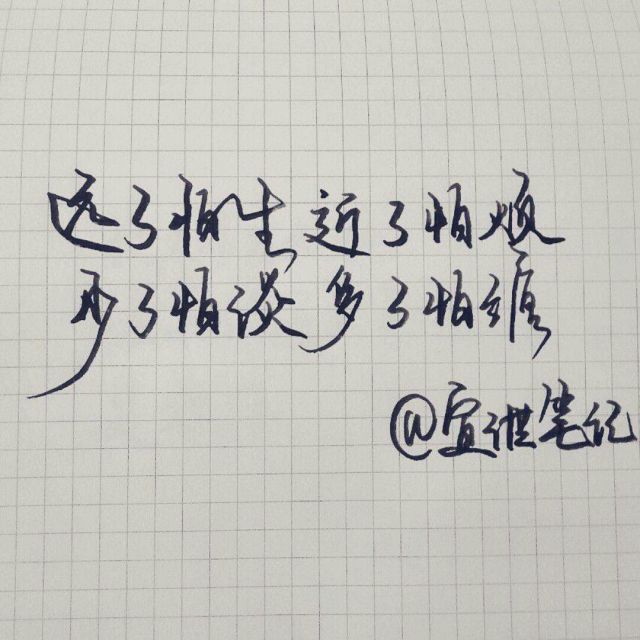 远了怕生 近了怕烦
少了怕淡 多了怕缠
@笔记